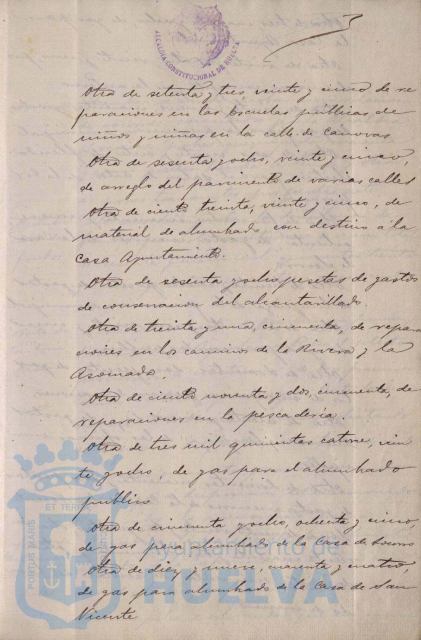 ALCALDIA CONSTITUCIONAL DE HUELVA
Otra de setenta y tres veinte y cinco de re
paraciones en las Escuelas públicas de
niños y niñas en la calle de Canovas
Otra de sesenta y ocho, veinte y cinco,
de arreglo del pavimento de varias calles
Otra de ciento treinta, veinte y cinco, de
material de alumbrado con destino a la
Casa Ayuntamiento.
Otra de sesenta y ocho pesetas de gastos
de conservacion del alcantarillado
Otra de treinta y una, cincuenta, de repara
ciones en los caminos de la Rivera y la
Otra de ciento noventa y dos, cincuenta, de
reparaciones en la pescaderia.
Otra de tres mil quinientas catorce, vein
te y ocho, de gas para el alumbrado
publico
Otra de cincuenta y ocho, ochenta y cinco,
de gas para alumbrado de la Casa de Socorro
Otra de diez y nueve, cuarenta y cuatro,
de gas para alumbrado de la Casa de San
Vicente
PORTUS MARIS
ET TERRÆ
Ayuntamiento de
HUELVA